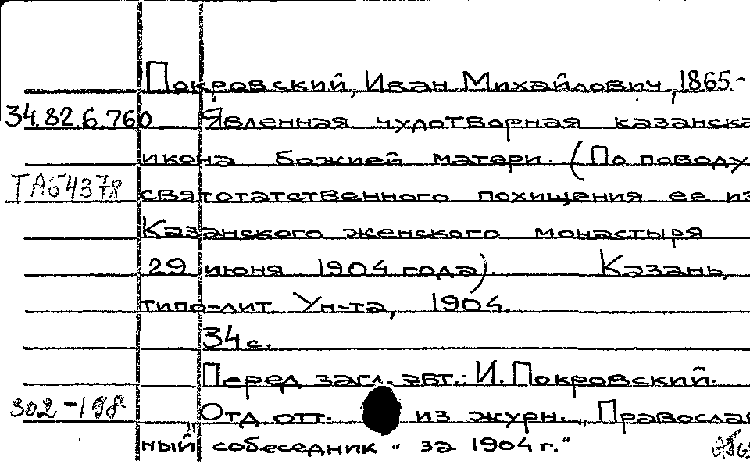 Покровский, Иван Михайлович, 1865.-
34.82.6.760 Явленная чудотворная казанска
икона божией матери. (По поводу
ТАБ4378 святотатственного похищения ее из
Казанского женского монастыря
29 июня 1904 года). Казань,
типо-лит. Ун-та, 1904.
34 с.
Перед загл. авт.: И. Покровский.
302-198 Отд. отт. из журн. „Православ
ный собеседник" за 1904 г."